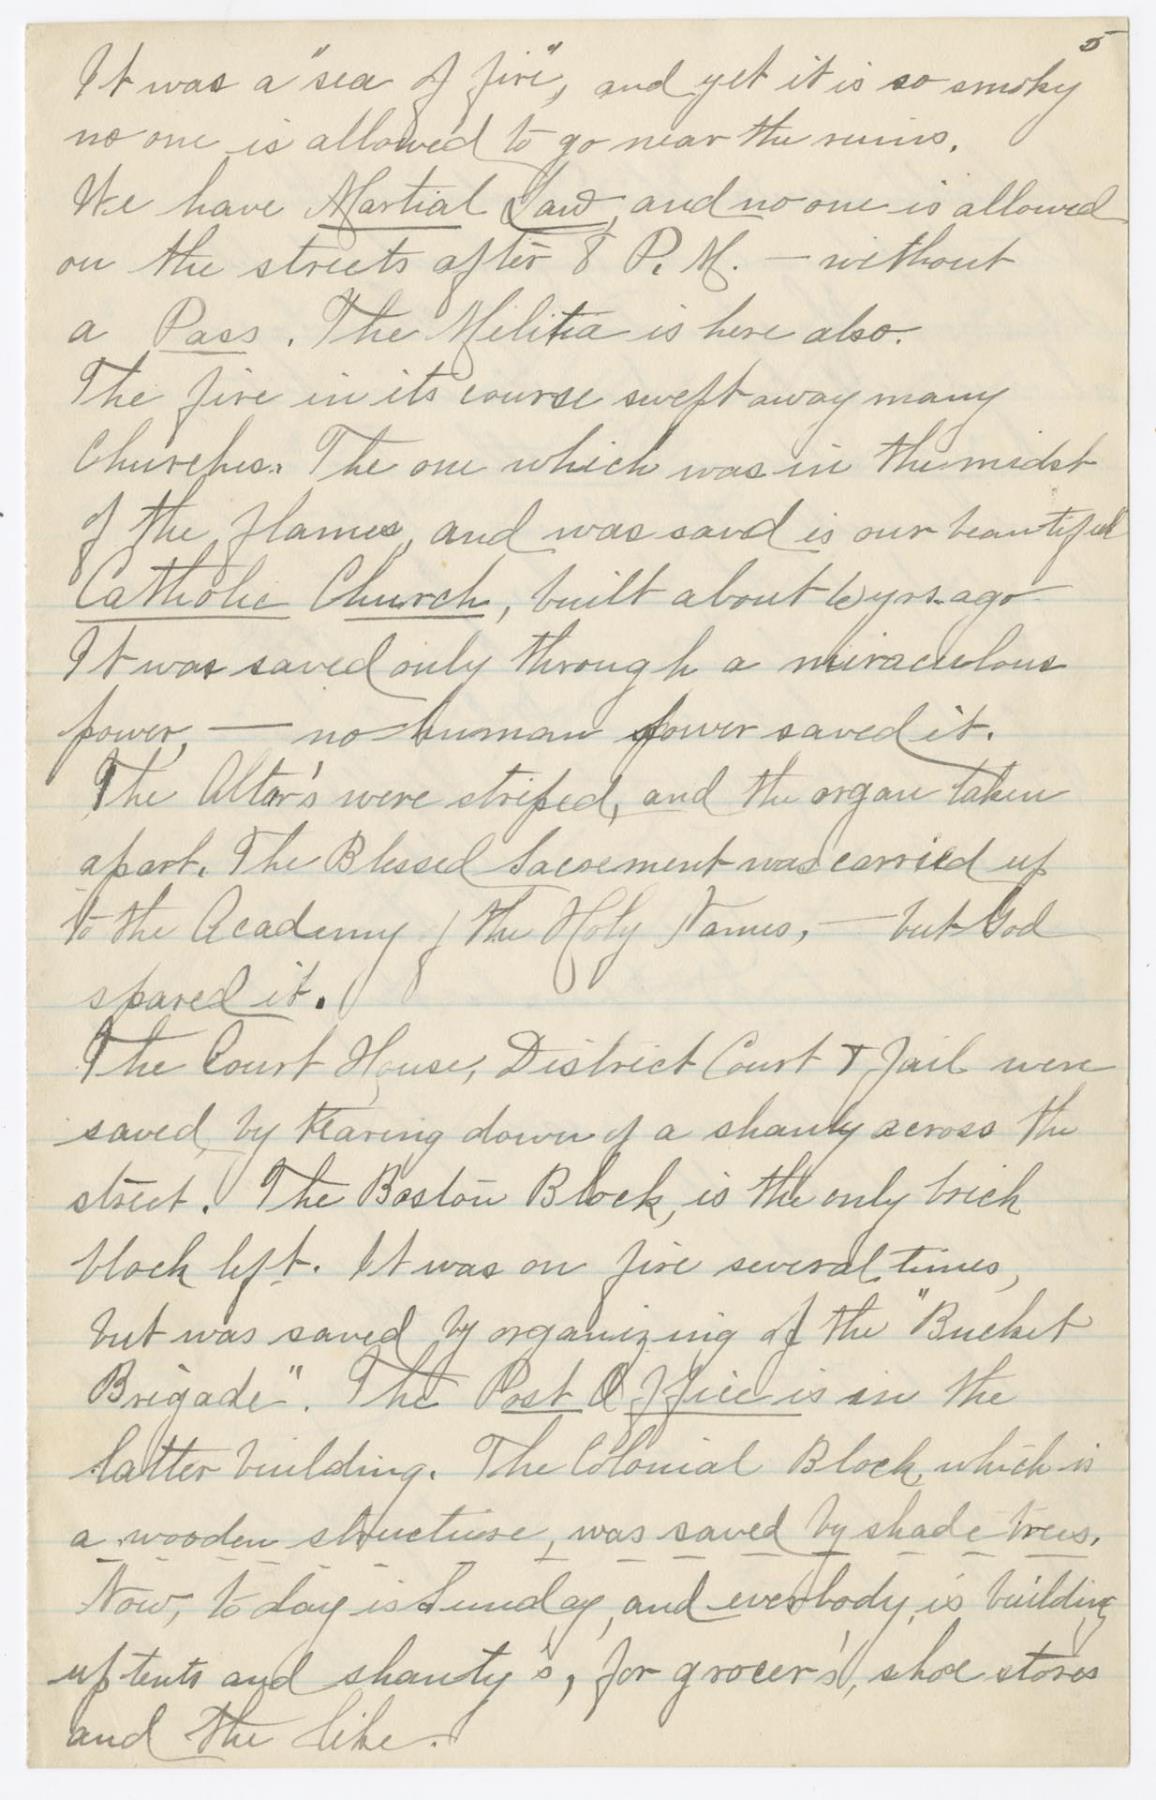 5
It was a "sea of fire", and yet it is so smoky
no one is allowed to go near the ruins.
We have Martial Law, and no one is allowed
on the streets after 8 P. M. — without
a Pass. The Militia is here also.
The fire in its course swept away many
Churches. The one which was in the midst
of the flames, and was saved is our beautiful
Catholic Church, built about 6 yrs. ago
It was saved only through a miraculous
power, — no human power saved it.
The Altar's were striped, and the organ taken
apart. The Blessed Sacrement was carried up
to the Academy of the Holy Names, — but God
spared it.
The Court House, District Court & Jail were
saved, by tearing down of a shanty across the
street. The Boston Block, is the only brick
block left. It was on fire several times,
but was saved by organizing of the "Bucket
Brigade". The Post Office is in the
latter building. The Colonial Block, which is
a wooden structure, was saved by shade trees.
Now, to day is Sunday, and everbody is building
up tents and shanty's, for grocer's, shoe stores
and the like.